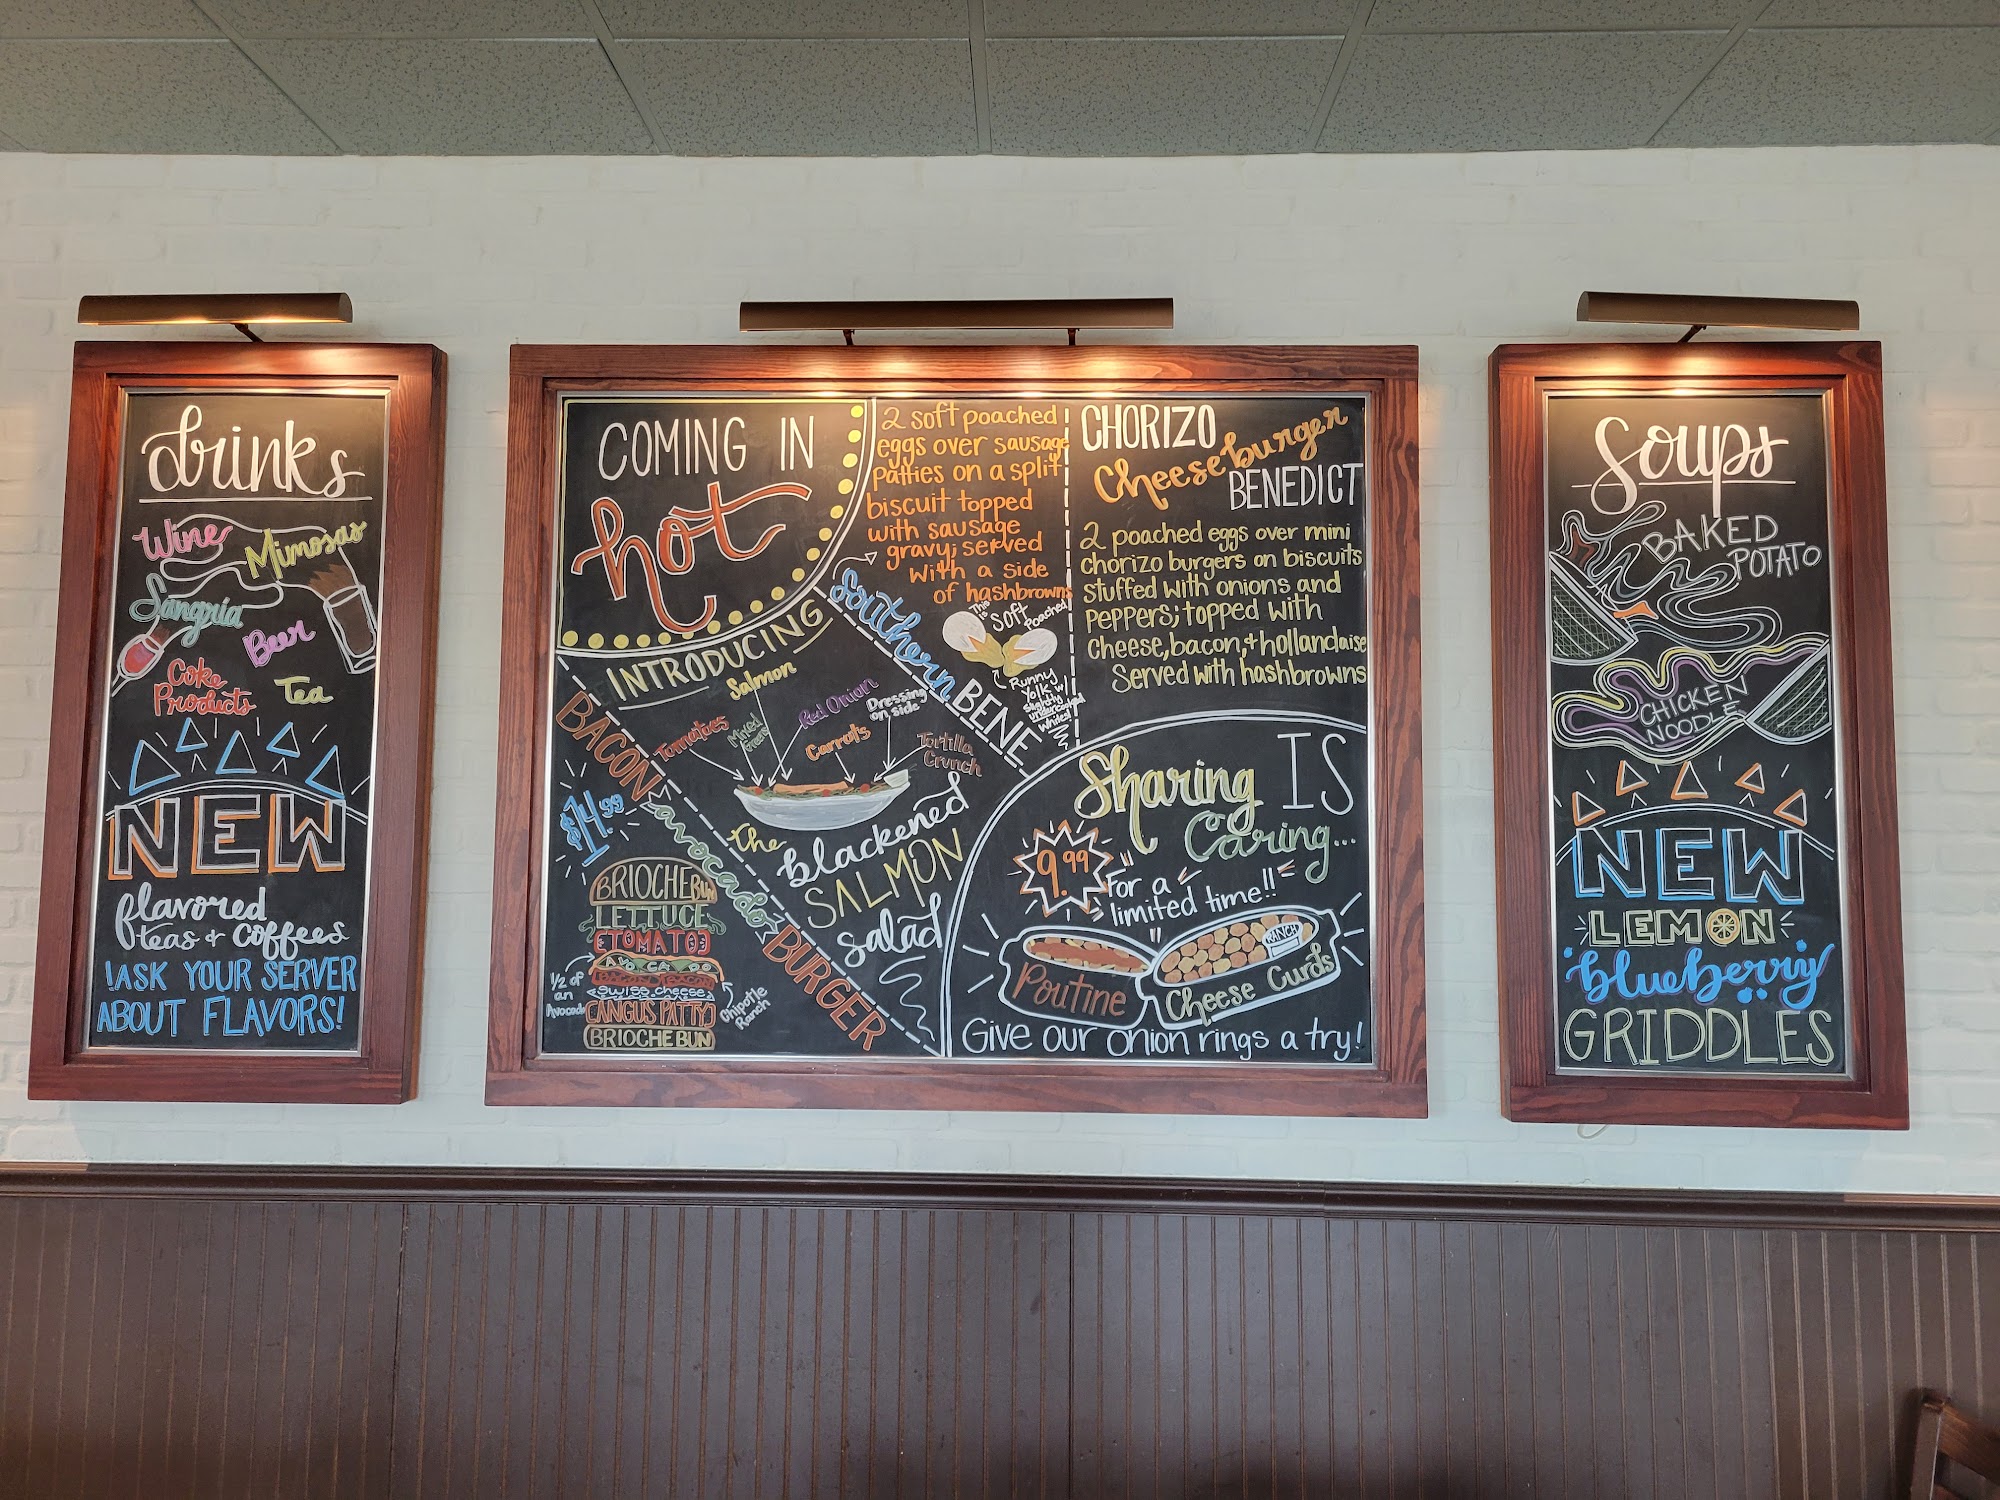 drinks
Wine
Mimosas
Sangria
Beer
Coke
Products
Tea
NEW
flavored
teas + coffees
!ASK YOUR SERVER
ABOUT FLAVORS!
COMING IN
hot
INTRODUCING
Salmon
Tomatoes
Mixed
Greens
Red Onion
Carrots
Dressing
on side
Tortilla
Crunch
the
blackened
SALMON
salad
BACON
avocado
BURGER
$14.99
BRIOCHE BUN
LETTUCE
TOMATO
AVOCADO
BACON
SWISS CHEESE
ANGUS PATTY
BRIOCHE BUN
1/2 of
an
Avocado
Chipotle
Ranch
2 soft poached
eggs over sausage
patties on a split
biscuit topped
with sausage
gravy; served
with a side
of hashbrowns
Southern
BENE
This
is
Soft
Poached
Runny
Yolk w/
slightly
undercooked
whites!
CHORIZO
Cheeseburger
BENEDICT
2 poached eggs over mini
chorizo burgers on biscuits
stuffed with onions and
peppers; topped with
cheese, bacon, + hollandaise
Served with hashbrowns
Sharing IS
Caring...
9.99
"For a
limited time!!"
Poutine
RANCH
Cheese Curds
Give our onion rings a try!
Soups
BAKED
POTATO
CHICKEN
NOODLE
NEW
LEMON
blueberry
GRIDDLES